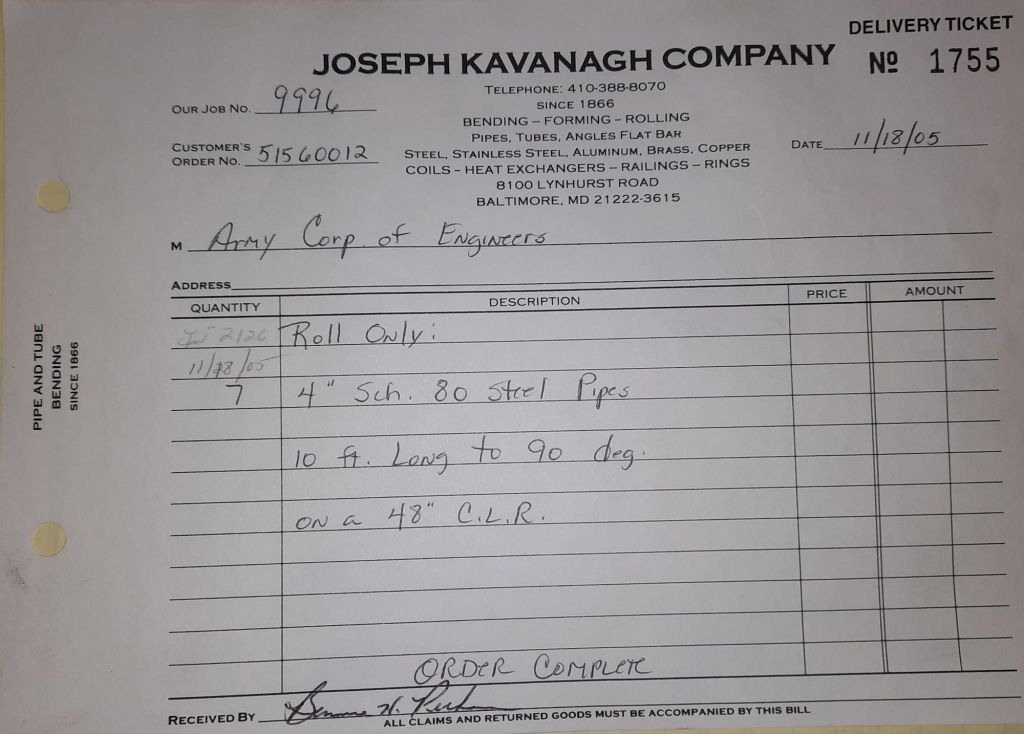 DELIVERY TICKET
JOSEPH KAVANAGH COMPANY
Nº 1755
TELEPHONE: 410-388-8070
SINCE 1866
BENDING – FORMING – ROLLING
PIPES, TUBES, ANGLES FLAT BAR
STEEL, STAINLESS STEEL, ALUMINUM, BRASS, COPPER
COILS – HEAT EXCHANGERS – RAILINGS – RINGS
8100 LYNHURST ROAD
BALTIMORE, MD 21222-3615
OUR JOB NO. 9996
CUSTOMER'S
ORDER NO. 51560012
DATE 11/18/05
M Army Corp. of Engineers
ADDRESS
QUANTITY DESCRIPTION PRICE AMOUNT
2126 Roll Only:
11/18/05
7 4" Sch. 80 Steel Pipes
10 ft. Long to 90 deg.
on a 48" C.L.R.
ORDER COMPLETE
RECEIVED BY
ALL CLAIMS AND RETURNED GOODS MUST BE ACCOMPANIED BY THIS BILL
PIPE AND TUBE
BENDING
SINCE 1866